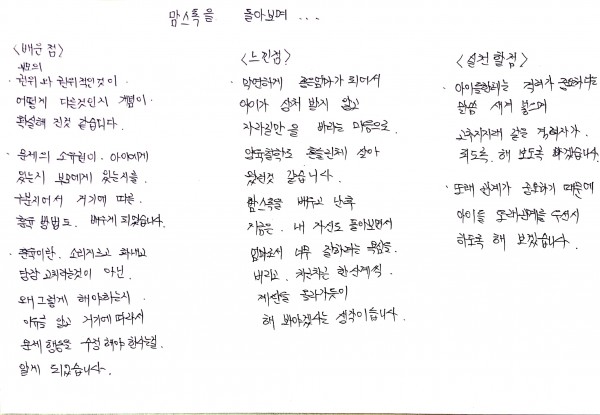 맘스톡을 돌아보며...
<배운점>
부모의
· 권위와 권위적인것이
어떻게 다른것인지 개념이
확실해 진것 같습니다.
· 문제의 소유권이 아이에게
있는지 부모에게 있는지를
구분지어서 거기에 따른
훈육 방법도 배우게 되었습니다.
· 훈육이란, 소리지르고 화내고
당장 고치라는것이 아닌
왜 그렇게 해야하는지
이유를 알고 거기에 따라서
문제 행동을 수정 해야 한다는걸
알게 되었습니다.
<느낀점>
· 막연하게 좋은엄마가 되어서
아이가 상처 받지 않고
자라길만을 바라는 마음으로
흔들린채 살아
왔던것 같습니다.
맘스톡을 배우고 난후
지금은. 내 자신도 돌아보면서
엄마로서 너무 잘하려는 욕심을
버리고, 차근차근 한단계씩
계단을 올라가듯이
해 봐야겠다는 생각이듭니다.
<실천할점>
· 아이들한테는 격려가 중요하다는
말씀 새겨 들으며
고추지지대 같은 격려자가
되도록. 해 보도록 하겠습니다.
· 또래 관계가 중요하기 때문에
아이들 또래관계를 우선시
하도록 해 보겠습니다.